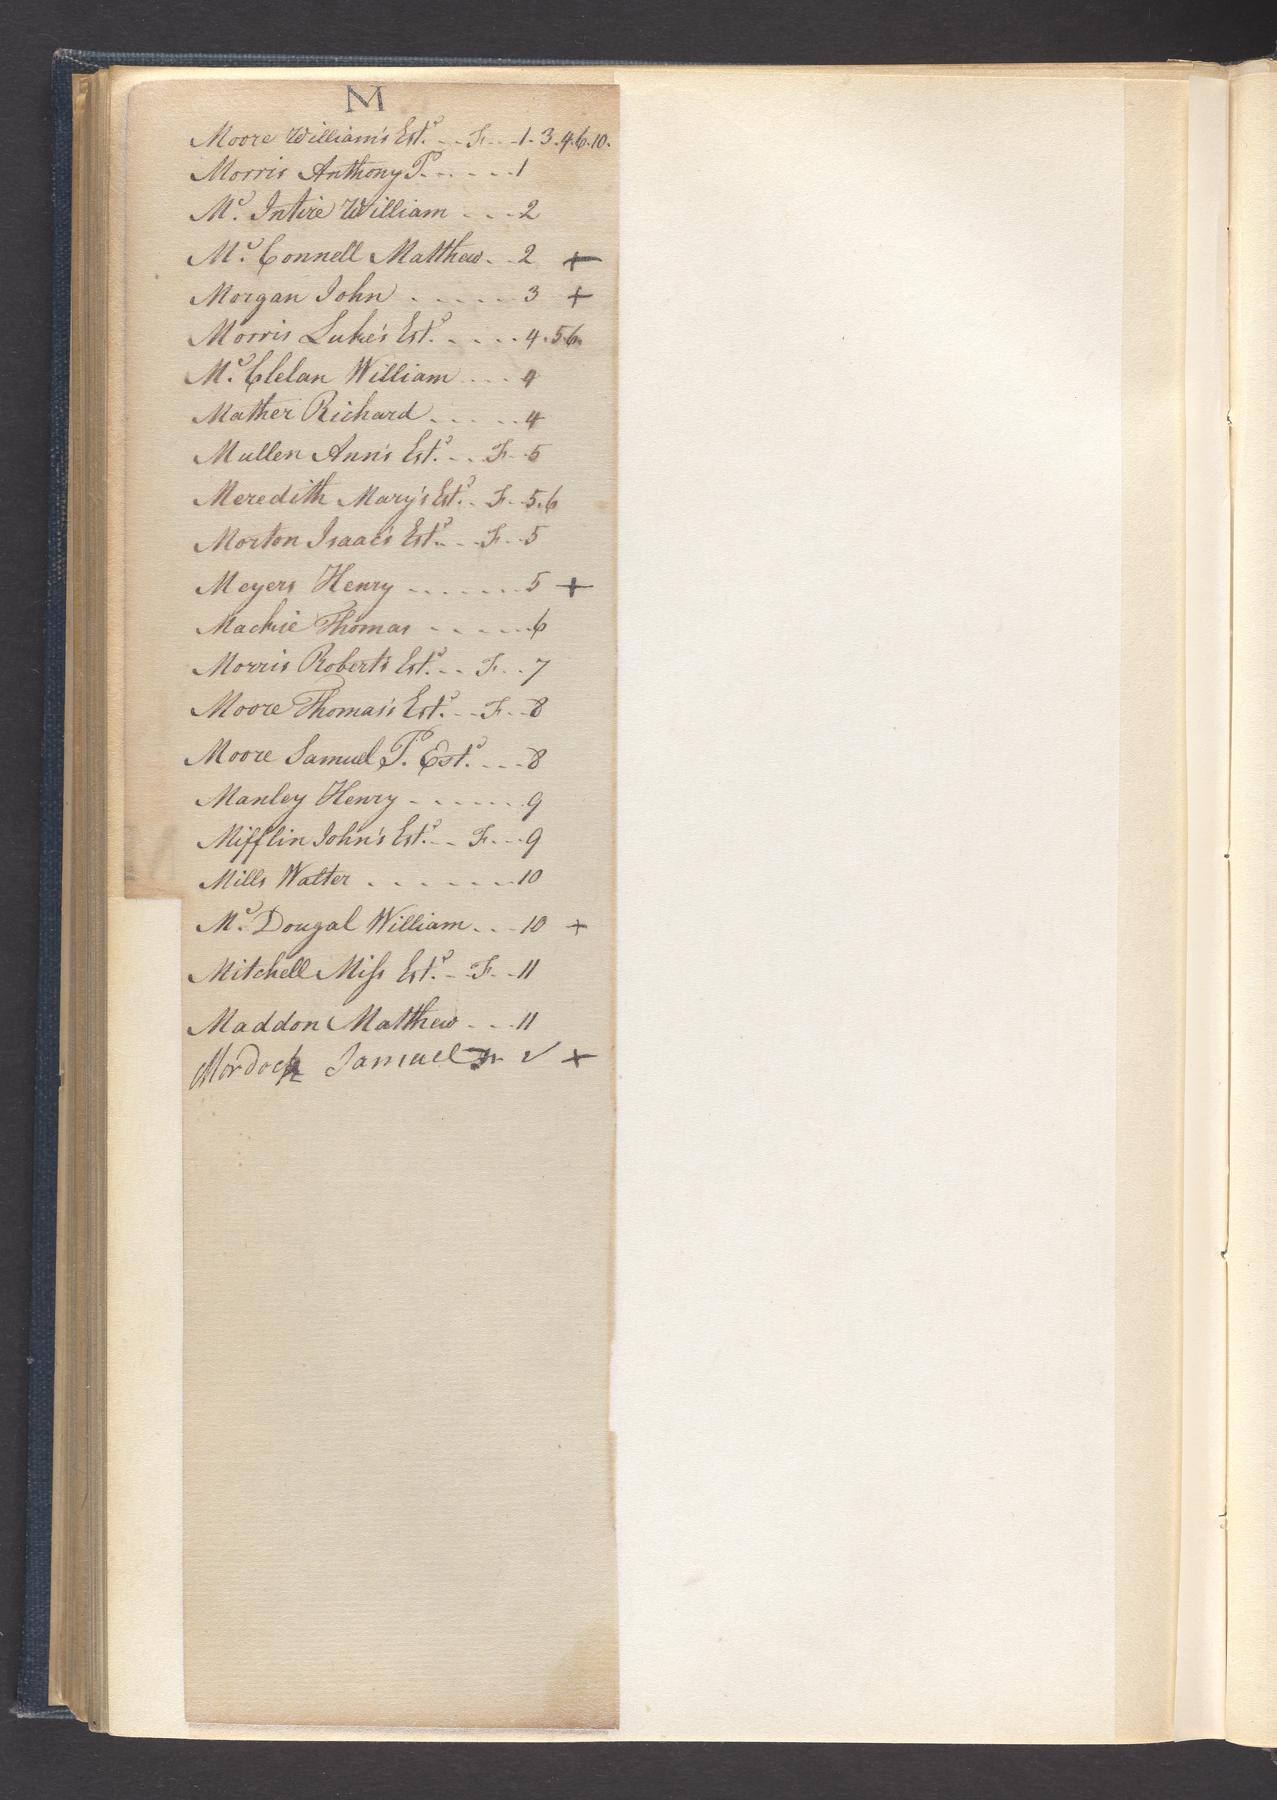 M
Moore William's Est.d - - F - - 1. 3. 4. 6. 10.
Morris Anthony P. - - - - - 1
Mc. Intire William - - - 2
Mc. Connell Matthew - - 2 +
Morgan John - - - - - 3 +
Morris Luke's Est.d - - - - 4. 5. 6.
Mc. Clelan William - - - 4
Mather Richard - - - - - 4
Mullen Ann's Est.d - - F - - 5
Meredith Mary's Est.d - F - - 5. 6
Morton Isaac's Est.d - - F - - 5
Meyers Henry - - - - - - - 5 +
Mackie Thomas - - - - - 6
Morris Robert's Est.d - - F - - 7
Moore Thomas's Est.d - - F - - 8
Moore Samuel P. Est.d - - - 8
Manley Henry - - - - - - 9
Mifflin John's Est.d - - F - - - 9
Mills Walter - - - - - - - 10
Mc. Dougal William - - - 10 +
Mitchell Miss Est.d - - F - - 11
Maddon Matthew - - - 11
Mordock Samuel +